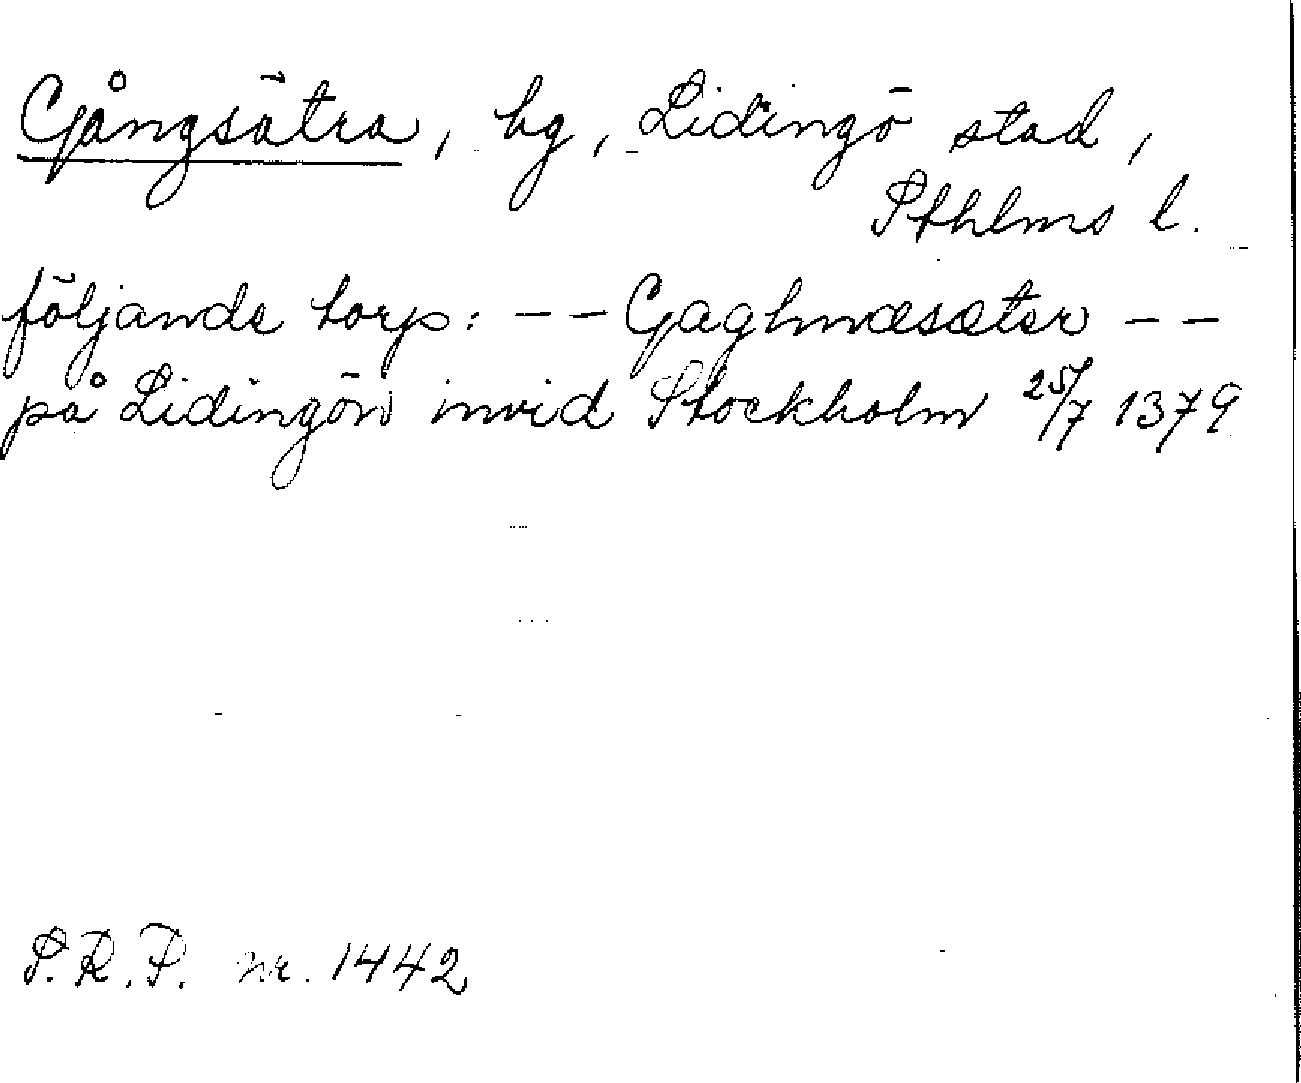 Gångsätra, hg, Lidingö stad,
Sthlms l.
följande torp: -- Gaghnæsæter --
på Lidingön invid Stockholm 25/7 1379
S.R.P. nr. 1442